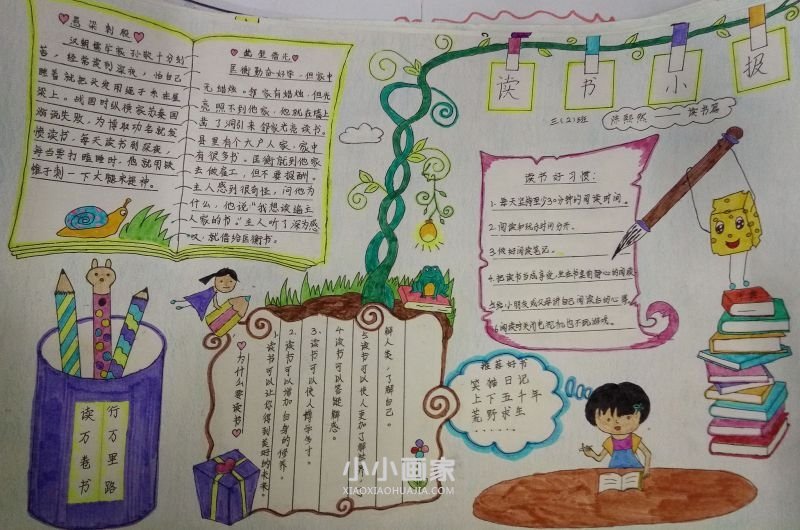 读书小报
三(2)班 陈熙然——读书篇
悬梁刺股
汉朝儒学家孙敬十分刻
苦，经常读到深夜，怕自己
睡着就把头发用绳子来住屋
梁上。战国时纵横家苏秦因
游说失败，为博取功名就发
愤读书，每天读书到深夜，
每当要打瞌睡时，他就用铁
锥子刺一下大腿来提神。
凿壁借光
匡衡勤奋好学，但家中
无蜡烛。邻家有蜡烛，但光
亮照不到他家，他就在墙上
凿了洞引来邻家光亮读书。
县里有个大户人家，家中
有很多书。匡衡就到他家
去做雇工，但不要报酬。
主人感到很奇怪，问他为
什么，他说“我想读遍主
人家的书。”主人听了深为感
叹，就借给匡衡书。
读书好习惯：
1.每天坚持至少30分钟的阅读时间。
2.阅读和玩乐时间分开。
3.做好阅读笔记。
4.把读书当成享受，坐在书里有静心的阅读
5.给小朋友或父母讲自己阅读后的心得
6.阅读时关闭电视机也不玩游戏。
行万里路
读万卷书
为什么要读书
1.读书可以让你得到美好的未来。
2.读书可以增加自身的修养。
3.读书可以使人博学多才。
4.读书可以答疑解惑。
5.读书可以使人更加了解
解人类，了解自己。
推荐好书
笑猫日记
上下五千年
荒野求生
……
小小画家
XIAOXIAOHUAJIA.COM